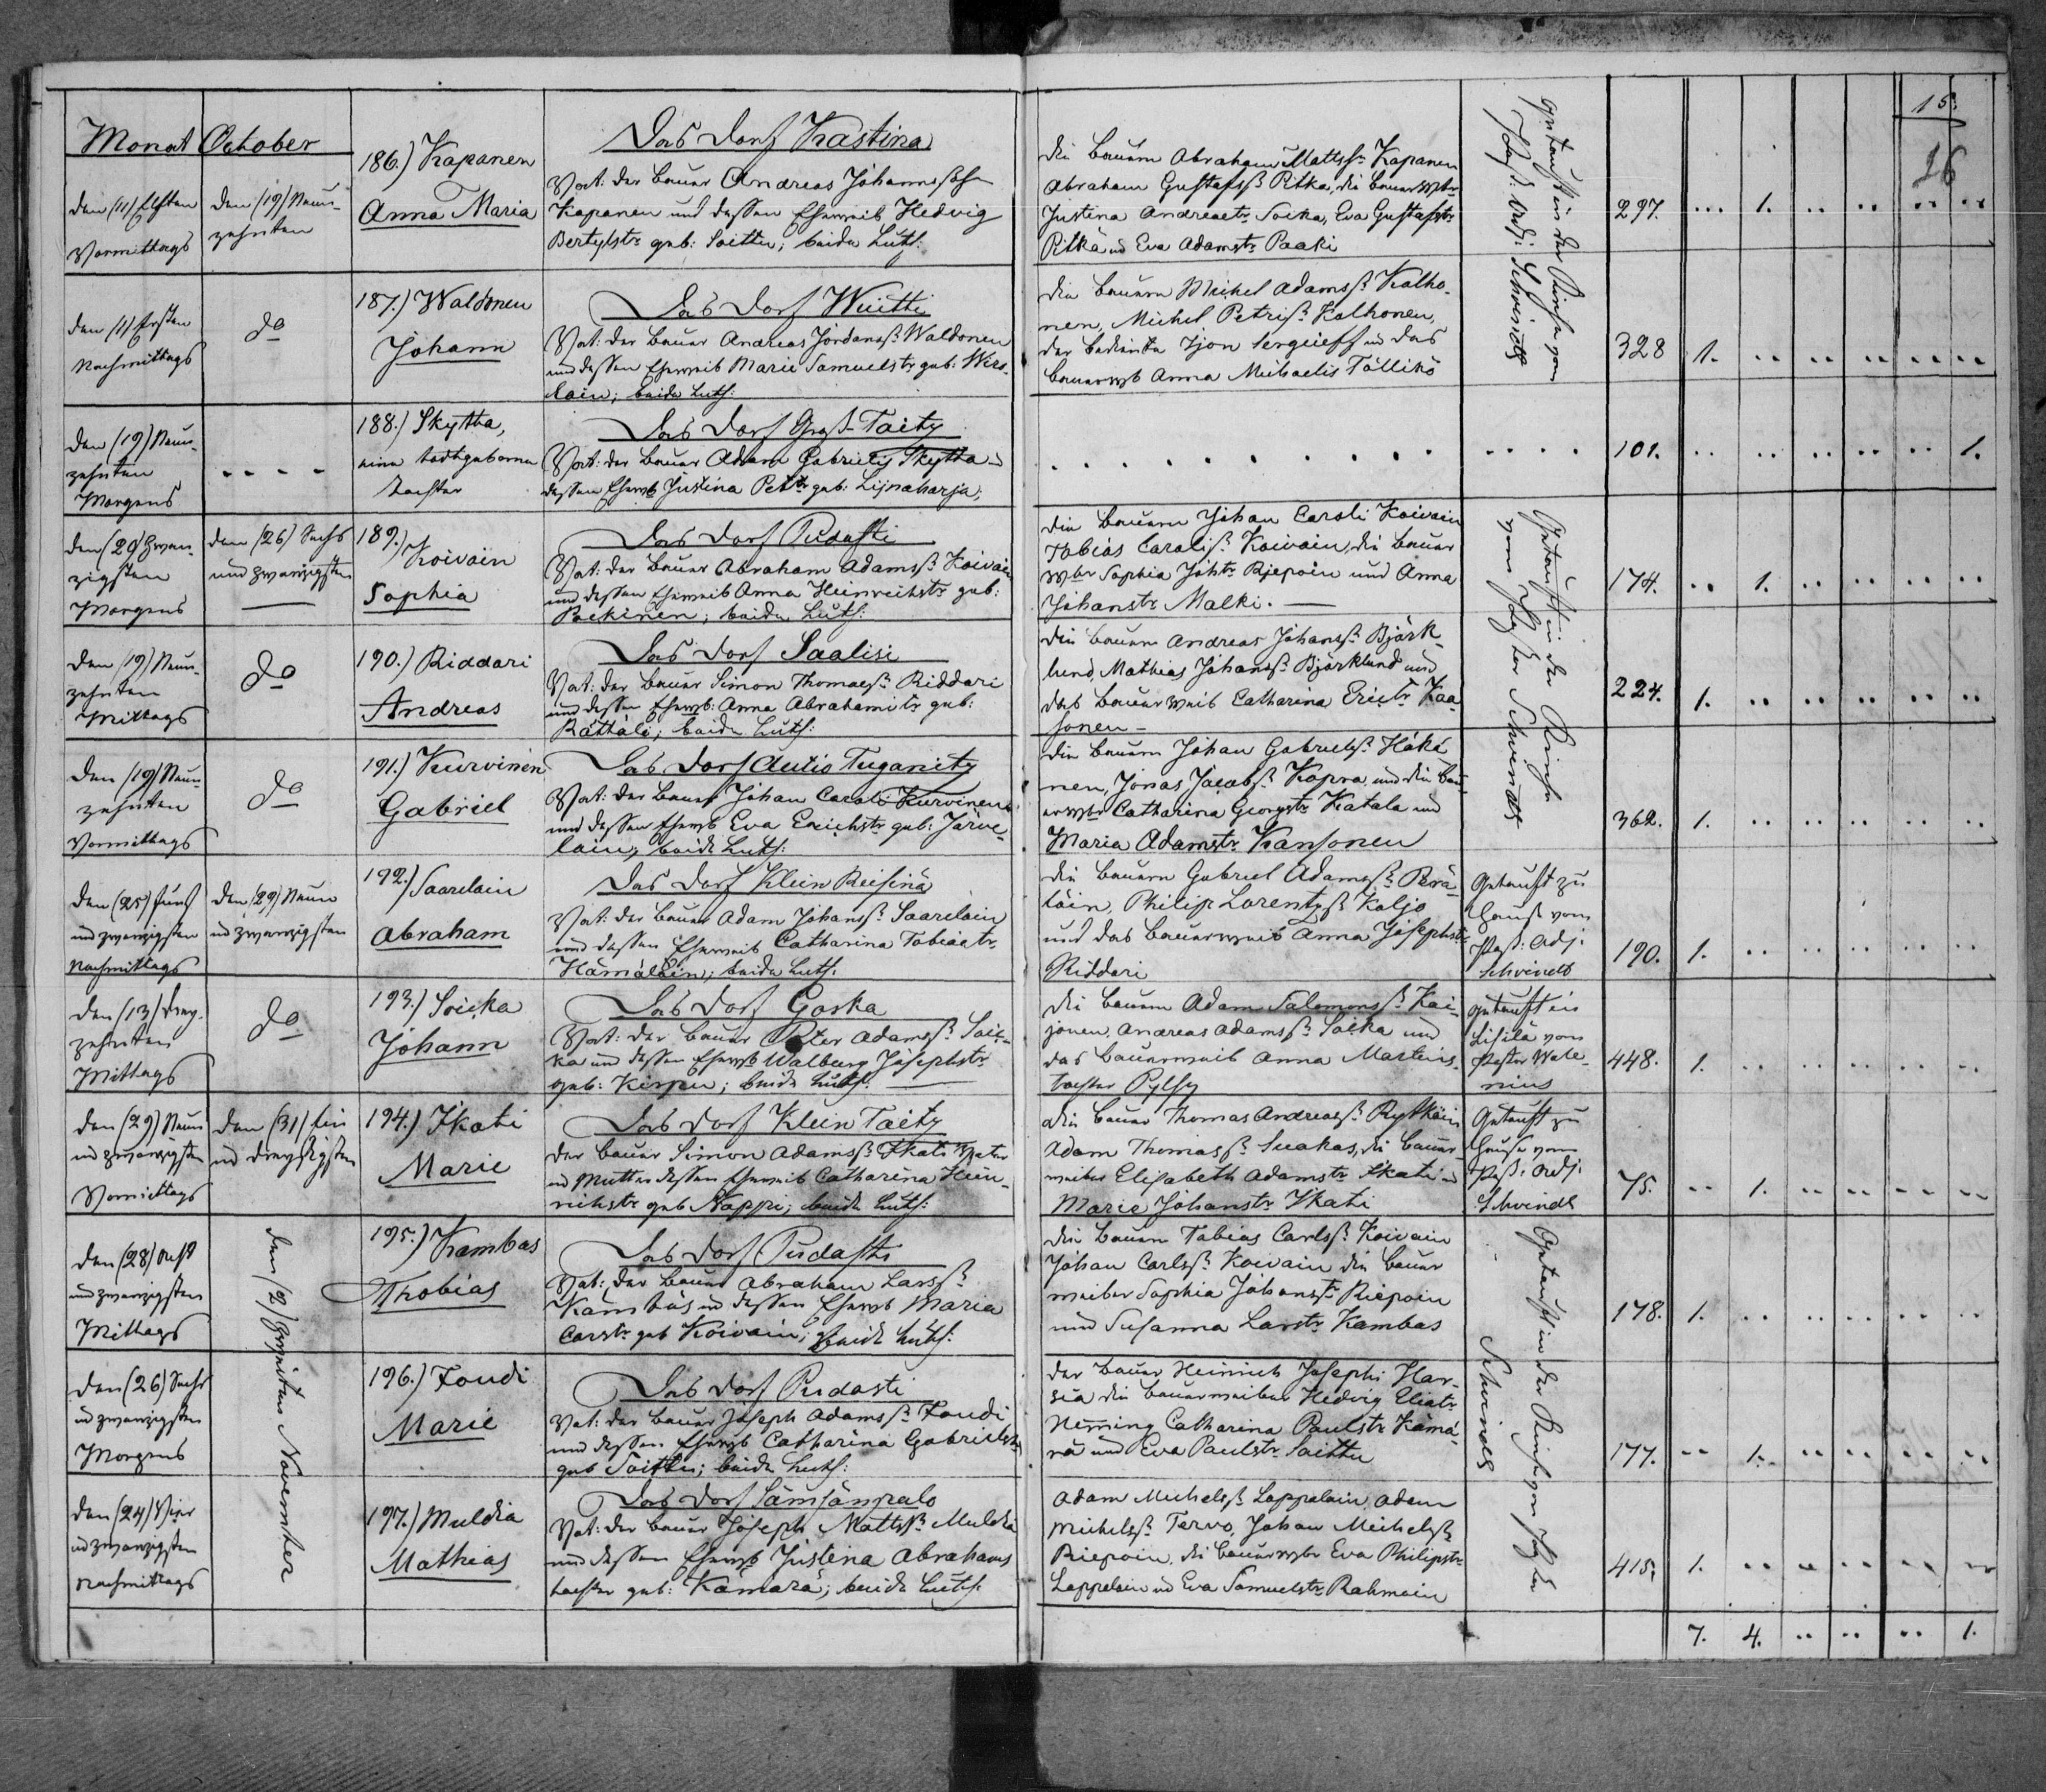 15.
26
Monat October
den (11) Elften
Vormittags
den (19) Neun-
zehnten
186.) Kapanen
Anna Maria
Das Dorf Kastina
Vat: der Bauer Andreas Johannssohn
Kapanen und dessen Eheweib Hedvig
Bertylstr. geb: Soittu; beide Luth:
die Bauern Abraham Mattsß. Kapanen
Abraham Gustafsß. Pitka, die Bauerwbr.
Justina Andreaetr. Soika, Eva Gustafstr.
Pitkä und Eva Adamstr. Paaki
Getauft in der Kirche von
Past: Adj: Schvindt
297. ... 1. .. .. .. ..
den (1) Ersten
Nachmittags
do
187.) Waldonen
Johann
Das Dorf Wuitti
Vat: der Bauer Andreas Jordansß. Waldonen
und dessen Eheweib Marie Samuelstr. geb: Wiro-
lain; beide Luth:
die Bauern Michel Adamsß. Kolho-
nen, Michel Petrisß. Kolhonen,
der bediente Ijon Sergeieff und das
Bauerwb Anna Michaelis Töllikö
328 1. .. .. .. .. ..
den (19) Neun-
zehnten
Morgens
. . . .
188.) Skytta,
eine todtgeborne
Tochter
Das Dorf Groß-Taity
Vat: der Bauer Adam Gabrielis Skytta u
dessen Ehewb Justina Petr. geb: Lijnaharja;
. . . . . . . . . .
. . . .
101. .. .. .. .. .. 1.
den (20) Zwan-
zigsten
Morgens
den (26) Sechs
und zwanzigsten
189.) Koivain
Sophia
Das Dorf Pudasti
Vat: der Bauer Abraham Adamsß. Koivain
und dessen Eheweib Anna Heinreichstr. geb:
Pockinen; beide Luth:
die Bauern Johan Caroli Koivain
Tobias Carolisß. Koivain, die Bauer
wbr. Sophia Johtr. Rjepoin und Anna
Johanstr. Malki.
Getauft in der Kirche
vom Pastor Schvindt
174. .. 1. .. .. .. ..
den (19) Neun-
zehnten
Mittags
do
190.) Riddari
Andreas
Das Dorf Saalisi
Vat: der Bauer Simon Thomaesß. Riddari
und dessen Ehewb: Anna Abrahamitr. geb:
Rättälö; beide Luth:
die Bauern Andreas Johansß. Björk-
lund, Mathias Johansß. Björklund und
das Bauerweib Catharina Erictr. Kaa-
sonen
224. 1. .. .. .. .. ..
den (19) Neun-
zehnten
Vormittags
do
191.) Kurvinen
Gabriel
Das Dorf Autio Tuganitz
Vat: der Bauer Johan Caroli Kurvinen
und dessen Ehewb Eva Erichstr. geb: Järve-
lain; beide Luth:
die Bauern Johan Gabrielsß. Häkä-
nen, Jonas Jacobsß. Kopra und die Bau-
erwbr Catharina Georgstr. Katala und
Maria Adamstr. Kansonen
362. 1. .. .. .. .. ..
den (25) Fünf
und zwanzigsten
Nachmittags
den (29) Neun
und zwanzigsten
192.) Saarelain
Abraham
Das Dorf Klein Reisinä
Vat: der Bauer Adam Johansß. Saarelain
und dessen Eheweib Catharina Tobiaetr.
Hämäläin; beide Luth.
die Bauern Gabriel Adamsß. Perä-
läin, Philip Lorentzß. Koljo
und das Bauerweib Anna Josephstr.
Riddari
Getauft zu
Hause vom
Past: Adj.
Schvindt
190. 1. .. .. .. .. ..
den (13) Drey-
zehnten
Mittags
do
193.) Soicka
Johann
Das Dorf Goska
Vat: der Bauer Peter Adamsß. Soic-
ka und dessen Ehewb Walburg Josephstr.
geb: Kirpu; beide Luth:
die Bauern Adam Salomonsß. Kai-
jonen, Andreas Adamsß. Soika und
das Bauerweib Anna Martins-
tochter Pylsy
getauft in
Lisilä vom
Pastor Wale-
nius
448. 1. .. .. .. .. ..
den (29) Neun
und zwanzigsten
Vormittags
den (31) Ein
und dreyßigsten
194.) Ikati
Marie
Das Dorf Klein Taity
der Bauer Simon Adamsß. Ikati Vater
und Mutter dessen Eheweib Catharina Hein-
richstr. geb Nappi; beide Luth:
die Bauer Thomas Andreasß. Rytköin
Adam Thomasß. Suakas, die Bauer-
weiber Elisabeth Adamstr. Ikati u
Marie Johanstr. Ikati
Getauft zu
Hause vom
Past: Adj.
Schvindt
75. .. 1. .. .. .. ..
den (28) Acht
und zwanzigsten
Mittags
den (2) Zweiten November
195.) Kambas
Thobias
Das Dorf Pudasti
Vat: der Bauer Abraham Larsß.
Kambas und dessen Ehewb Maria
Carstr. geb Koivain; beide Luth:
die Bauern Tobias Carlsß. Koivain
Johan Carlsß. Koivain die Bauer
weiber Sophia Johanstr. Riepoin
und Susanna Larstr. Kambas
Getauft in der Kirche von Pastor
Schvindt
178. 1. .. .. .. .. ..
den (26) Sechs
und zwanzigsten
Morgens
196.) Foudi
Marie
Das Dorf Pudasti
Vat: der Bauer Joseph Adamsß. Foudi
und dessen Ehewb Catharina Gabrielstr.
geb Soittu; beide Luth:
der Bauer Heinrich Josephi Har-
sia die Bauerweiber Hedvig Eliatr.
Nemming Catharina Paulstr. Kämä-
rä und Eva Paulstr. Soittu
177. .. 1. .. .. .. ..
den (24) Vier
und zwanzigsten
Nachmittags
197.) Muldia
Mathias
Das Dorf Sämsämpalo
Vat: der Bauer Joseph Mattsß. Muldia
und dessen Ehewb Justina Abrahams
tochter geb: Kämärä; beide Luth:
Adam Michelsß. Lappelain, Adam
Michelsß. Tervo, Johan Michelsß.
Riepoin, die Bauerwbr Eva Philipstr.
Lappelain und Eva Samuelstr. Rahmain
415. 1. .. .. .. .. ..
7. 4. .. .. .. 1.